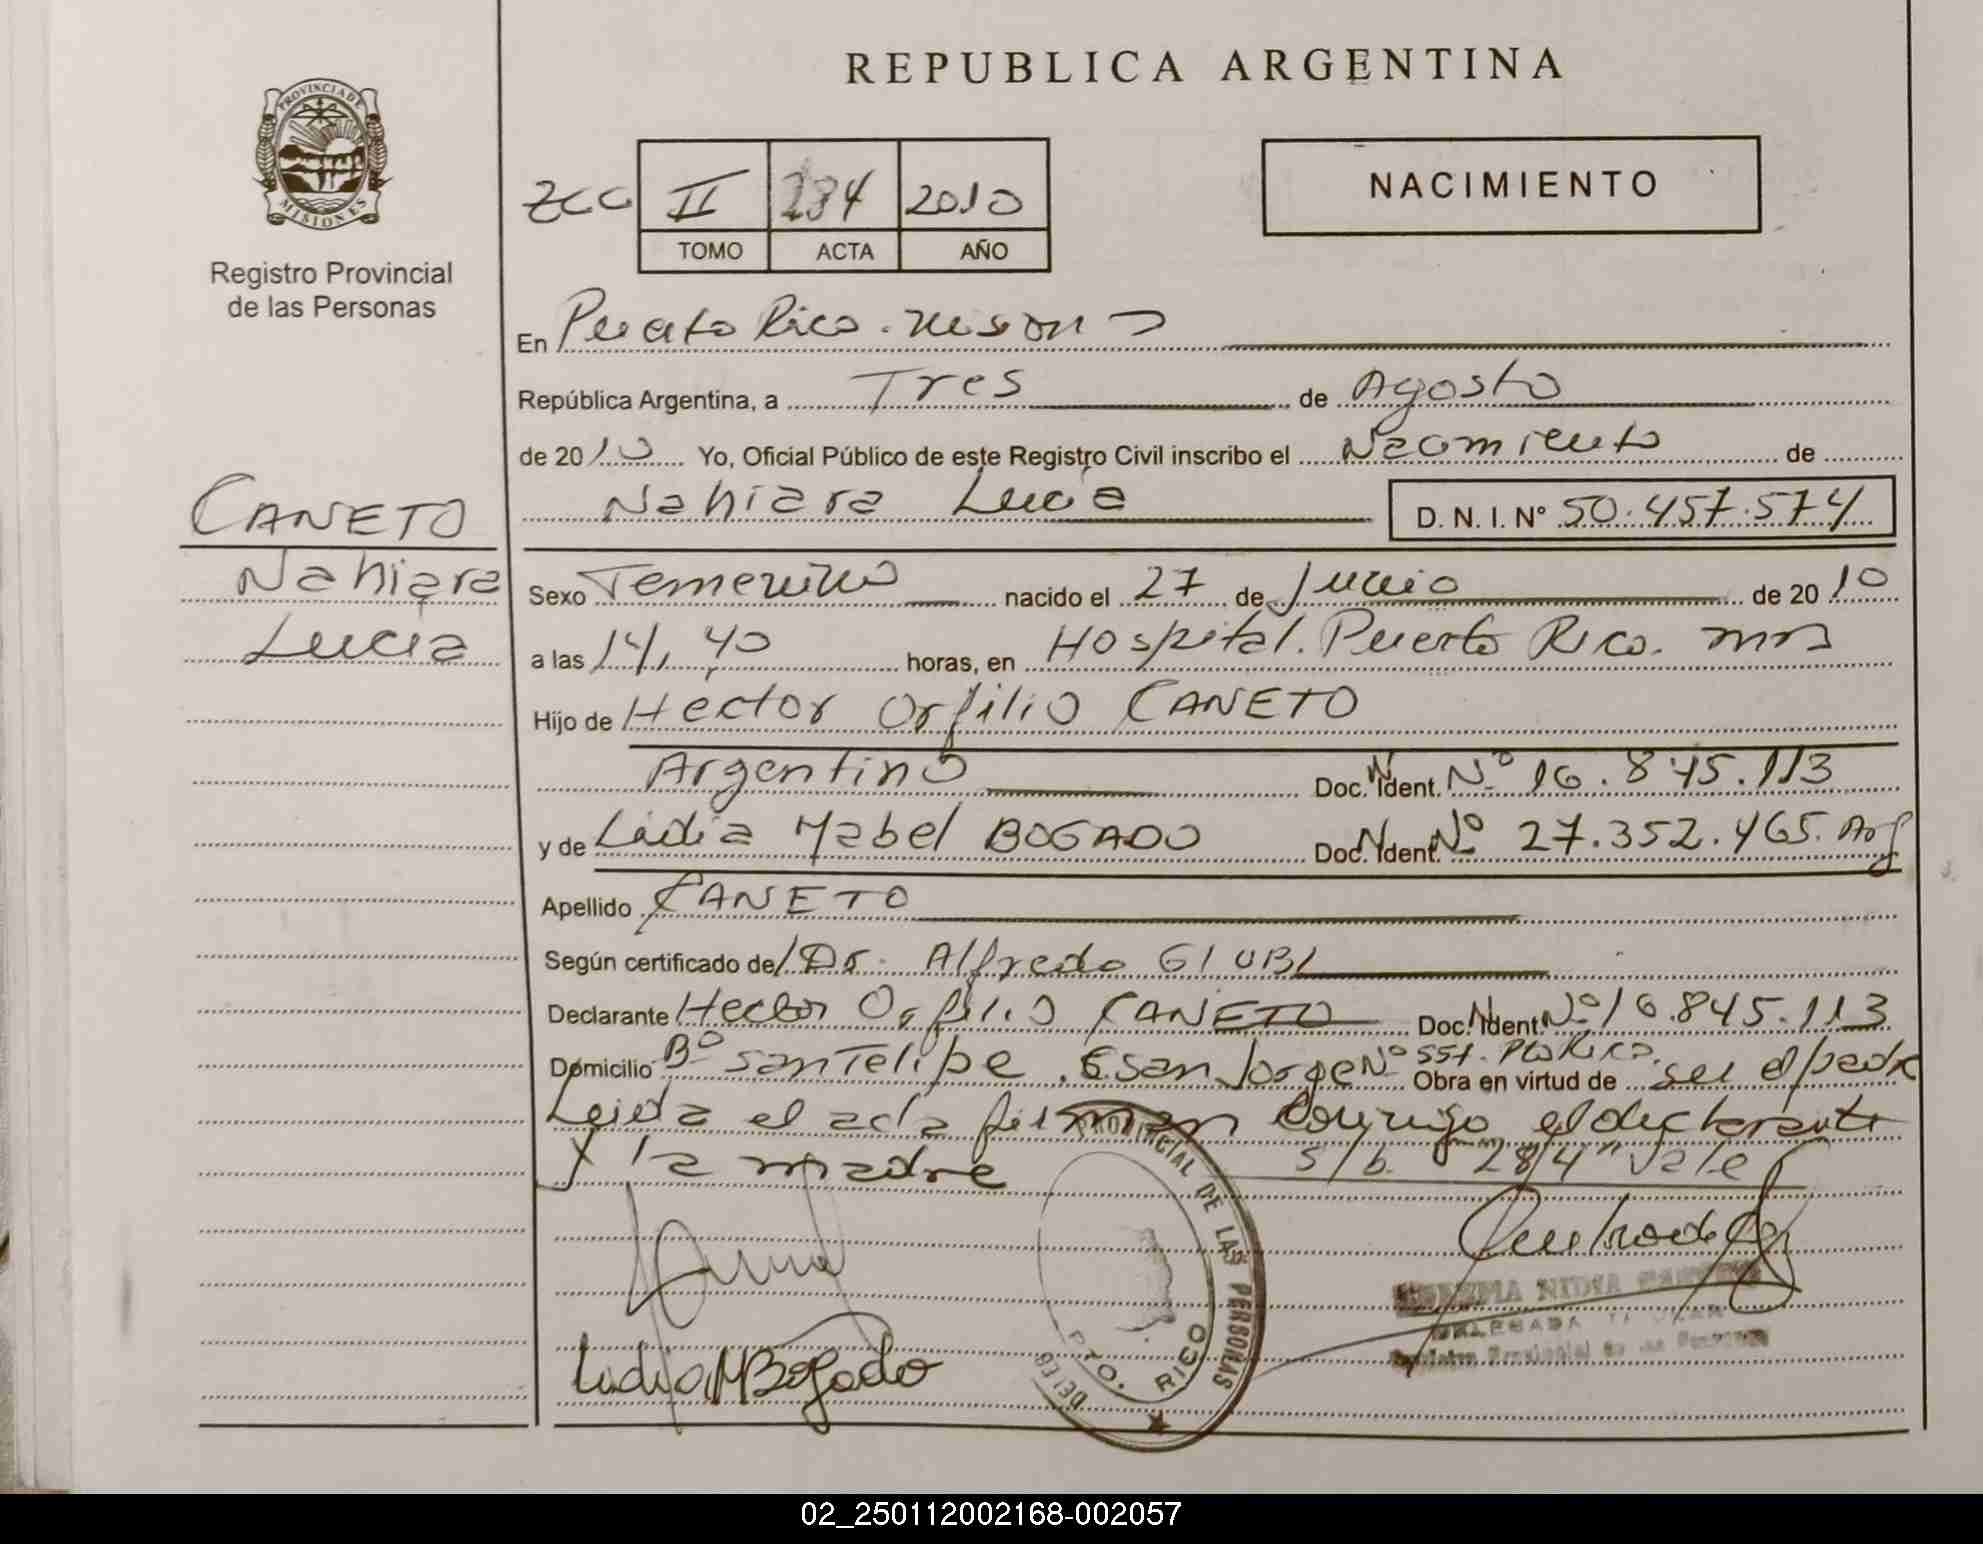 REPUBLICA ARGENTINA
PROVINCIA DE MISIONES
Registro Provincial
de las Personas
II 284 2010
TOMO ACTA AÑO
NACIMIENTO
En Puerto Rico. Misiones
República Argentina, a Tres de Agosto
de 2010 Yo, Oficial Público de este Registro Civil inscribo el Nacimiento de
Nahiara Lucia D. N. I. Nº 50.457.574
CANETO
Nahiara
Lucia
Sexo Femenino nacido el 27 de Junio de 2010
a las 14,40 horas, en Hospital. Puerto Rico. Mns
Hijo de Hector Orfilio CANETO
Argentino Doc. Ident. Nº 16.845.113
y de Lidia Mabel BOGADO Doc. Ident. Nº 27.352.465. Arg
Apellido CANETO
Según certificado de Dr. Alfredo GIUBI
Declarante Hector Orfilio CANETO Doc. Ident. Nº 16.845.113
Domicilio Bº San Felipe. C San Jorge Nº 557. Pto Rico. Obra en virtud de ser el padre
Leida el acta firman conmigo el declarante
y la madre S/b. "284" Vale
PROVINCIAL DE LAS PERSONAS
PTO. RICO
Lidia M Bogado
NIDIA
DELEGADA TITULAR
Registro Provincial de las Personas
02_250112002168-002057